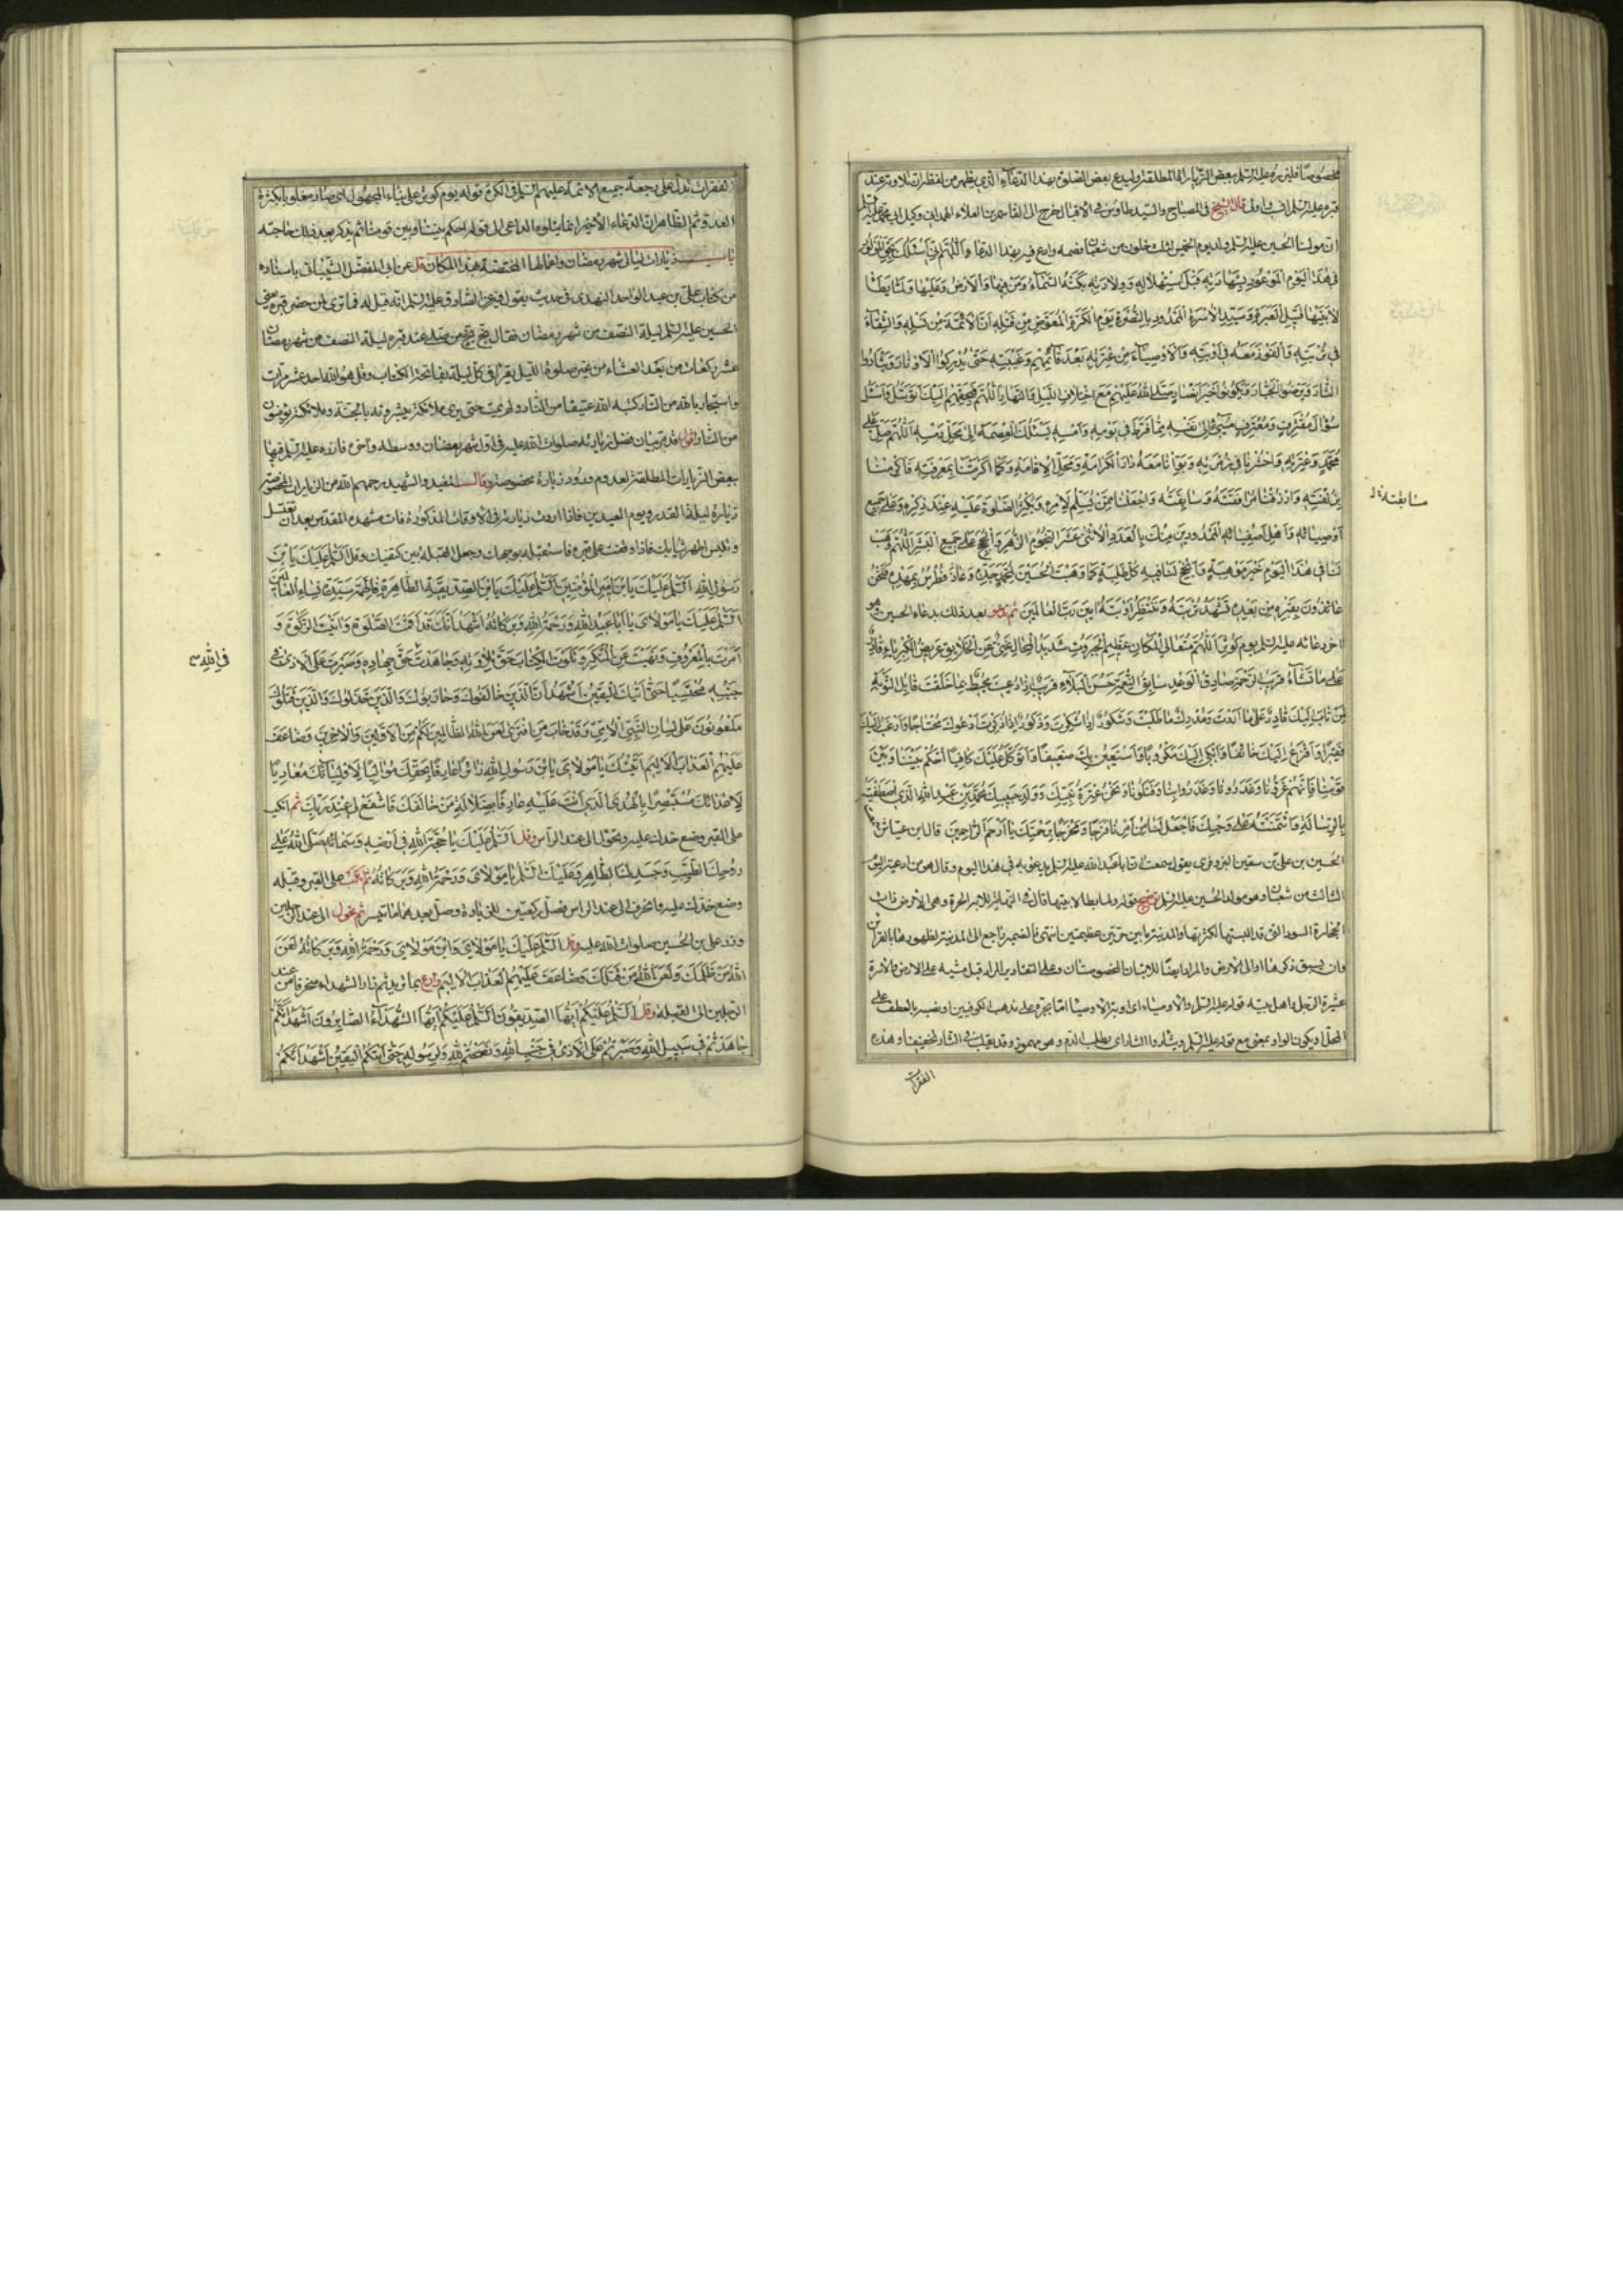 مخصوصا فليزره عليه السلم ببعض الزيارات المطلقة وليدع بعض الصلوة بهذا الدعاء الذي يظهر من لفظه ان تلاوته عند
قبره عليه السلم انسب واولى قال الشيخ في المصباح والسيد طاوس في الاقبال خرج الى القاسم بن العلاء الهمداني وكيل ابي محمد عليه السلم
ان مولانا الحسين عليه السلم ولد يوم الخميس لثلث خلون من شعبان فصمه وادع فيه بهذا الدعاء اَللّهُمَّ اِنّي اَسْئَلُكَ بِحَقِّ الْمَوْلُودِ
في هذَا الْيَوْمِ الْمَوْعُودِ بِشَهادَتِهِ قَبْلَ اسْتِهْلالِهِ وَوِلادَتِهِ بَكَتْهُ السَّماءُ وَمَنْ فيها وَالْاَرْضُ وَمَنْ عَلَيْها وَلَمّا يَطَأْ
لابَتَيْها قَتيلِ الْعَبْرَةِ وَسَيِّدِ الْاُسْرَةِ الْمَمْدُودِ بِالنُّصْرَةِ يَوْمَ الْكَرَّةِ الْمُعَوَّضِ مِنْ قَتْلِهِ اَنَّ الْاَئِمَّةَ مِنْ نَسْلِهِ وَالشِّفاءَ
في تُرْبَتِهِ وَالْفَوْزَ مَعَهُ في اَوْبَتِهِ وَالْاَوْصِياءَ مِنْ عِتْرَتِهِ بَعْدَ قائِمِهِمْ وَغَيْبَتِهِ حَتّى يُدْرِكُوا الْاَوْتارَ وَيَثْاَرُوا
الثّارَ وَيُرْضُوا الْجَبّارَ وَيَكُونُوا خَيْرَ اَنْصارٍ صَلَّى اللهُ عَلَيْهِمْ مَعَ اخْتِلافِ اللَّيْلِ وَالنَّهارِ اَللّهُمَّ فَبِحَقِّهِمْ اِلَيْكَ اَتَوَسَّلُ وَاَسْئَلُ
سُؤالَ مُقْتَرِفٍ وَمُعْتَرِفٍ مُسيءٍ اِلى نَفْسِهِ مِمّا فَرَّطَ في يَوْمِهِ وَاَمْسِهِ يَسْئَلُكَ الْعِصْمَةَ اِلى مَحَلِّ رَمْسِهِ اَللّهُمَّ صَلِّ عَلى
مُحَمَّدٍ وَعِتْرَتِهِ وَاحْشُرْنا في زُمْرَتِهِ وَبَوِّئْنا مَعَهُ دارَ الْكَرامَةِ وَمَحَلَّ الْاِقامَةِ وَكَما اَكْرَمْتَنا بِمَعْرِفَتِهِ فَاَكْرِمْنا
بِزُلْفَتِهِ وَارْزُقْنا مُرافَقَتَهُ وَسابِقَتَهُ وَاجْعَلْنا مِمَّنْ يُسَلِّمُ لِاَمْرِهِ وَيُكْثِرُ الصَّلوةَ عَلَيْهِ عِنْدَ ذِكْرِهِ وَعَلى جَميعِ
اَوْصِيائِهِ وَاَهْلِ اَصْفِيائِهِ الْمَمْدُودينَ مِنْكَ بِالْعَدَدِ الْاِثْنَيْ عَشَرَ النُّجُومِ الزُّهَرِ وَالْحُجَجِ عَلى جَميعِ الْبَشَرِ اَللّهُمَّ وَهَبْ
لَنا في هذَا الْيَوْمِ خَيْرَ مَوْهِبَةٍ وَاَنْجِحْ لَنا فيهِ كُلَّ طَلِبَةٍ كَما وَهَبْتَ الْحُسَيْنَ لِمُحَمَّدٍ جَدِّهِ وَعاذَ فُطْرُسُ بِمَهْدِهِ فَنَحْنُ
عائِذُونَ بِقَبْرِهِ مِنْ بَعْدِهِ نَشْهَدُ تُرْبَتَهُ وَنَنْتَظِرُ اَوْبَتَهُ امينَ رَبَّ الْعالَمينَ ثم تدعو بعد ذلك بدعاء الحسين وهو
اخر دعائه عليه السلم يوم كوثر اَللّهُمَّ مُتَعالِيَ الْمَكانِ عَظيمَ الْجَبَرُوتِ شَديدَ الْمِحالِ غَنِيٌّ عَنِ الْخَلائِقِ عَريضُ الْكِبْرِياءِ قادِرٌ
عَلى ما تَشاءُ قَريبُ الرَّحْمَةِ صادِقُ الْوَعْدِ سابِغُ النِّعْمَةِ حَسَنُ الْبَلاءِ قَريبٌ اِذا دُعيتَ مُحيطٌ بِما خَلَقْتَ قابِلُ التَّوْبَةِ
لِمَنْ تابَ اِلَيْكَ قادِرٌ عَلى ما اَرَدْتَ وَمُدْرِكٌ ما طَلَبْتَ وَشَكُورٌ اِذا شُكِرْتَ وَذَكُورٌ اِذا ذُكِرْتَ اَدْعُوكَ مُحْتاجًا وَاَرْغَبُ اِلَيْكَ
فَقيرًا وَاَفْزَعُ اِلَيْكَ خائِفًا وَاَبْكي اِلَيْكَ مَكْرُوبًا وَاَسْتَعينُ بِكَ ضَعيفًا وَاَتَوَكَّلُ عَلَيْكَ كافِيًا اُحْكُمْ بَيْنَنا وَبَيْنَ
قَوْمِنا فَاِنَّهُمْ غَرُّونا وَخَدَعُونا وَغَدَرُوا بِنا وَقَتَلُونا وَنَحْنُ عِتْرَةُ نَبِيِّكَ وَوُلْدُ حَبيبِكَ مُحَمَّدِ بْنِ عَبْدِ اللهِ الَّذِي اصْطَفَيْتَهُ
بِالرِّسالَةِ وَائْتَمَنْتَهُ عَلى وَحْيِكَ فَاجْعَلْ لَنا مِنْ اَمْرِنا فَرَجًا وَمَخْرَجًا بِرَحْمَتِكَ يا اَرْحَمَ الرّاحِمينَ قال ابن عياش سمعت
الحسين بن علي بن سفين البزوفري يقول سمعت ابا عبد الله عليه السلم يدعو به في هذا اليوم وقال هو من ادعية اليوم
الثالث من شعبان وهو مولد الحسين عليه السلم توضيح قوله ولما يطا لابتيها قال في النهاية اللابة الحرة وهي الارض ذات
الحجارة السود التي قد البستها لكثرتها والمدينة ما بين حرتين عظيمتين انتهى فالضمير راجع الى المدينة لظهورها بالقرائن
وان لم يسبق ذكرها او الى الارض والمراد ايضا اللابتان المخصوصتان وعلى التقادير المراد قبل مشيه على الارض والاسرة
عشيرة الرجل واهل بيته قوله عليه السلم والاوصياء اي وبالاوصياء اما بجره على مذهب الكوفيين او نصبه بالعطف على
المحل او يكون الواو بمعنى مع قوله عليه السلم ويثاروا الثار اي يطلب الدم وهو مهموز وقد يقلب في الثار تخفيفا وهذه
الفقرات
سابقته ل
الفقرات تدل على رجعة جميع الائمة عليهم السلم في الكرة قوله يوم كوثر على بناء المجهول اي صار مغلوبا بكثرة
العدو ثم الظاهر ان الدعاء الاخير انما يتلوه الداعي الى قوله احكم بيننا وبين قومنا ثم يذكر بعد ذلك حاجته
باب زيارات ليالي شهر رمضان واعمالها المختصة بهذا المكان قل عن ابي المفضل الشيباني باسناده
من كتاب علي بن عبد الواحد النهدي في حديث يقول فيه عن الصادق عليه السلم انه قيل له فما ترى لمن حضر قبره يعني
الحسين عليه السلم ليلة النصف من شهر رمضان فقال بخ بخ من صلى عند قبره ليلة النصف من شهر رمضان
عشر ركعات من بعد العشاء من غير صلوة الليل يقرا في كل ركعة بفاتحة الكتاب وقل هو الله احد عشر مرات
واستجار بالله من النار كتبه الله عتيقا من النار ولم يمت حتى يرى ملائكة يبشرونه بالجنة وملائكة يؤمنونه
من النار اقول قد مر بيان فضل زيارته صلوات الله عليه في اول شهر رمضان ووسطه واخره فانزره عليه السلم فيها
ببعض الزيارات المطلقة لعدم ورود زيارة مخصوصة وقال المفيد والشهيد رحمهم الله من الزيارات المخصوصة
زيارة ليلة القدر ويوم العيدين فاذا اردت زيارته في الاوقات المذكورة فات مشهده المقدس بعد ان تغتسل
وتلبس اطهر ثيابك فاذا وقفت على قبره فاستقبله بوجهك واجعل القبلة بين كتفيك وقل اَلسَّلامُ عَلَيْكَ يَا بْنَ
رَسُولِ اللهِ اَلسَّلامُ عَلَيْكَ يَا بْنَ اَميرِ الْمُؤْمِنينَ اَلسَّلامُ عَلَيْكَ يَا بْنَ الصِّدّيقَةِ الطّاهِرَةِ فاطِمَةَ سَيِّدَةِ نِساءِ الْعالَمينَ
اَلسَّلامُ عَلَيْكَ يا مَوْلايَ يا اَبا عَبْدِ اللهِ وَرَحْمَةُ اللهِ وَبَرَكاتُهُ اَشْهَدُ اَنَّكَ قَدْ اَقَمْتَ الصَّلوةَ وَاتَيْتَ الزَّكوةَ وَ
اَمَرْتَ بِالْمَعْرُوفِ وَنَهَيْتَ عَنِ الْمُنْكَرِ وَتَلَوْتَ الْكِتابَ حَقَّ تِلاوَتِهِ وَجاهَدْتَ حَقَّ جِهادِهِ وَصَبَرْتَ عَلَى الْاَذى في
جَنْبِهِ مُحْتَسِبًا حَتّى اَتيكَ الْيَقينُ اَشْهَدُ اَنَّ الَّذينَ خالَفُوكَ وَحارَبُوكَ وَالَّذينَ خَذَلُوكَ وَالَّذينَ قَتَلُوكَ
مَلْعُونُونَ عَلى لِسانِ النَّبِيِّ الْاُمِّيِّ وَقَدْ خابَ مَنِ افْتَرى لَعَنَ اللهُ الظّالِمينَ لَكُمْ مِنَ الْاَوَّلينَ وَالْاخِرينَ وَضاعَفَ
عَلَيْهِمُ الْعَذابَ الْاَليمَ اَتَيْتُكَ يا مَوْلايَ يَا بْنَ رَسُولِ اللهِ زائِرًا عارِفًا بِحَقِّكَ مُوالِيًا لِاَوْلِيائِكَ مُعادِيًا
لِاَعْدائِكَ مُسْتَبْصِرًا بِالْهُدَى الَّذي اَنْتَ عَلَيْهِ عارِفًا بِضَلالَةِ مَنْ خالَفَكَ فَاشْفَعْ لي عِنْدَ رَبِّكَ ثم انكب
على القبر وضع خدك عليه وتحول الى عند الراس وقل اَلسَّلامُ عَلَيْكَ يا حُجَّةَ اللهِ في اَرْضِهِ وَسَمائِهِ صَلَّى اللهُ عَلى
رُوحِكَ الطَّيِّبِ وَجَسَدِكَ الطّاهِرِ وَعَلَيْكَ السَّلامُ يا مَوْلايَ وَرَحْمَةُ اللهِ وَبَرَكاتُهُ ثم انكب على القبر وقبله
وضع خدك عليه وانحرف الى عند الراس فصل ركعتين للزيادة وصل بعدهما ما تيسر ثم تحول الى عند الرجلين
وزر علي بن الحسين صلوات الله عليه وقل اَلسَّلامُ عَلَيْكَ يا مَوْلايَ وَابْنَ مَوْلايَ وَرَحْمَةُ اللهِ وَبَرَكاتُهُ لَعَنَ
اللهُ مَنْ ظَلَمَكَ وَلَعَنَ اللهُ مَنْ قَتَلَكَ وَضاعَفَ عَلَيْهِمُ الْعَذابَ الْاَليمَ وادع بما تريد ثم زر الشهداء منحرفا من عند
الرجلين الى القبلة وقل اَلسَّلامُ عَلَيْكُمْ اَيُّهَا الصِّدّيقُونَ اَلسَّلامُ عَلَيْكُمْ اَيُّهَا الشُّهَداءُ الصّابِرُونَ اَشْهَدُ اَنَّكُمْ
جاهَدْتُمْ في سَبيلِ اللهِ وَصَبَرْتُمْ عَلَى الْاَذى في جَنْبِ اللهِ وَنَصَحْتُمْ للهِ وَلِرَسُولِهِ حَتّى اَتيكُمُ الْيَقينُ اَشْهَدُ اَنَّكُمْ
في الله